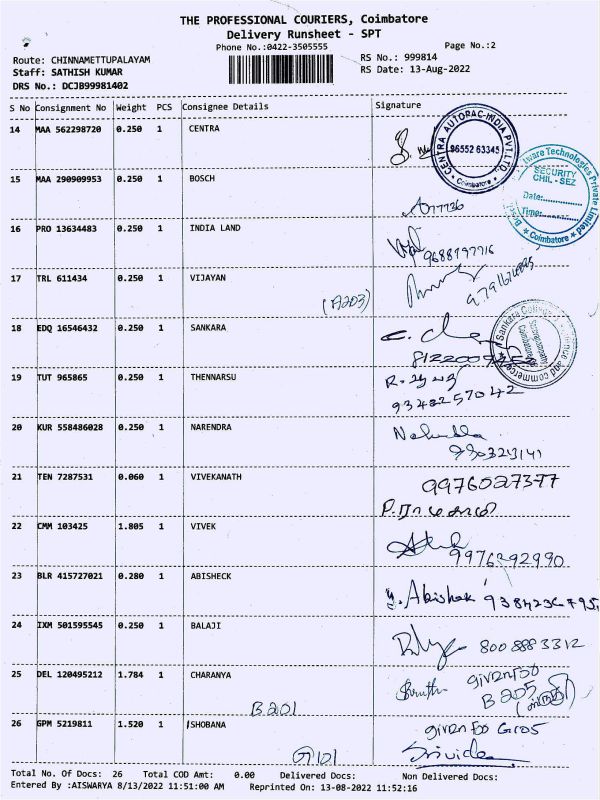 THE PROFESSIONAL COURIERS, Coimbatore
Delivery Runsheet - SPT
Phone No.:0422-3505555
Page No.:2
Route: CHINNAMETTUPALAYAM
RS No.: 999814
Staff: SATHISH KUMAR
RS Date: 13-Aug-2022
DRS No.: DCJB99981402
S No Consignment No Weight PCS Consignee Details Signature
14 MAA 562298720 0.250 1 CENTRA
CENTRA AUTORAC-INDIA PVT.LTD. 96552 63345 Coimbatore
15 MAA 290909953 0.250 1 BOSCH
ware Technologies Private Limited Coimbatore
SECURITY
CHIL - SEZ
Date:
Time:
16 PRO 13634483 0.250 1 INDIA LAND
9688197716
17 TRL 611434 0.250 1 VIJAYAN
(A203)
18 EDQ 16546432 0.250 1 SANKARA
Sankara College of Science and commerce
19 TUT 965865 0.250 1 THENNARSU
9348257042
20 KUR 558486028 0.250 1 NARENDRA
21 TEN 7287531 0.060 1 VIVEKANATH
9976027377
22 CMM 103425 1.805 1 VIVEK
9976292990
23 BLR 415727021 0.280 1 ABISHECK
Y. Abishek
24 IXM 501595545 0.250 1 BALAJI
800 888 3312
25 DEL 120495212 1.784 1 CHARANYA
B201
given to
B205
26 GPM 5219811 1.520 1 SHOBANA
G101
given to G105
Srividea
Total No. Of Docs: 26 Total COD Amt: 0.00 Delivered Docs: Non Delivered Docs:
Entered By :AISWARYA 8/13/2022 11:51:00 AM Reprinted On: 13-08-2022 11:52:16